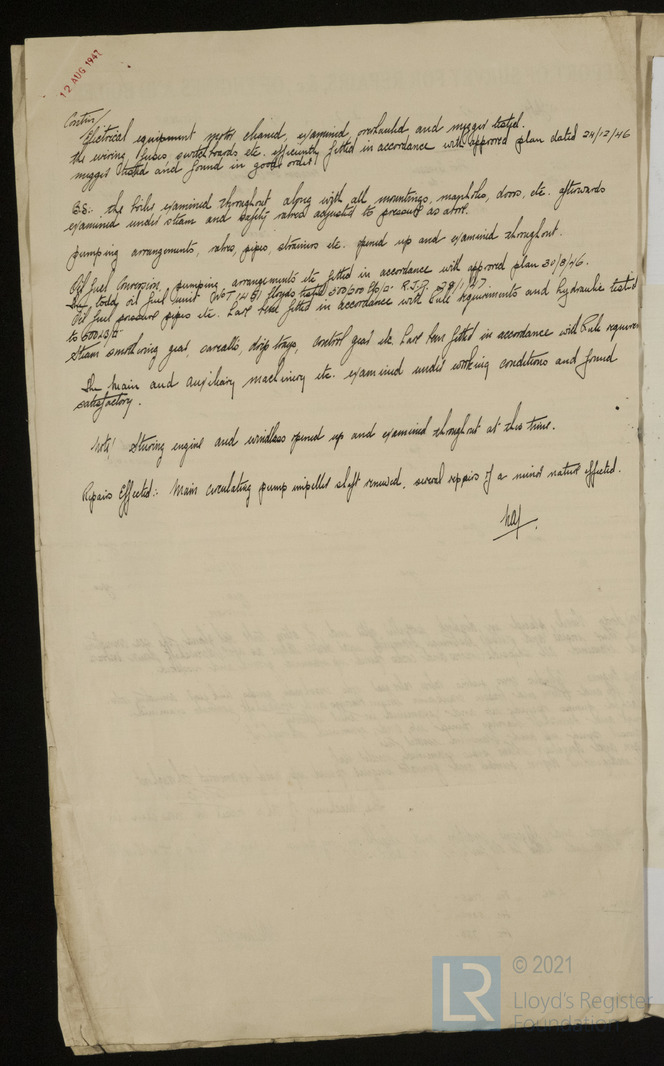 12 AUG 1947
Contin/
Electrical equipment motor cleaned, examined, overhauled and megger tested.
the wiring, fuses, switchboards etc. efficiently fitted in accordance with approved plan dated 24/12/46
megger tested and found in good order.
B.S:- the boilers examined throughout along with all mountings, manholes, doors, etc. afterwards
examined under steam and safety valves adjusted to pressure as above.
pumping arrangements, valves, pipes, strainers etc. opened up and examined throughout.
Oil fuel Conversion, pumping arrangements etc fitted in accordance with approved plan 30/8/46.
The oil fuel unit Lloyds tested R.J.G. 28/1/47.
Oil fuel pressure pipes etc. have been fitted in accordance with Rule requirements and hydraulic tested
to
Steam smothering gear, savealls, drip trays, control gear etc. have been fitted in accordance with Rule requirem
The Main and Auxiliary machinery etc. examined under working conditions and found
satisfactory.
Note! Steering engine and windlass opened up and examined throughout at this time.
Repairs Effected:- Main circulating pump impeller shaft renewed, several repairs of a minor nature effected.
LR
© 2021
Lloyd's Register
Foundation